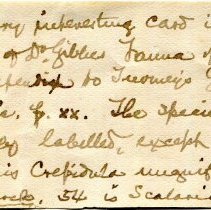 ry interesting card i
of Dr. Gibbes Fauna
pendix to Tuomeys
p. xx. The speci
ly labelled, except
is Crepidula
54 is Scalari